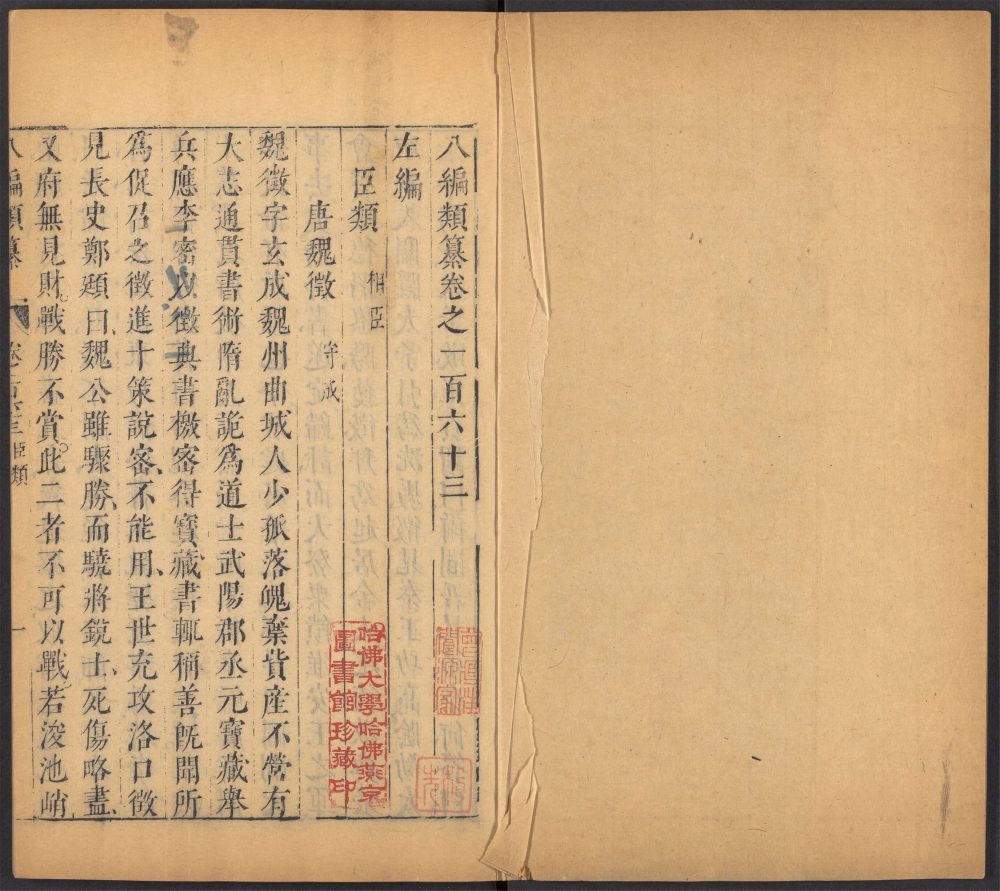 八編類纂卷之一百六十三
左編
臣類 相臣
唐魏徵 守成
魏徵字玄成魏州曲城人少孤落魄棄貲産不營有
大志通貫書術隋亂詭爲道士武陽郡丞元寶藏舉
兵應李密以徵典書檄密得寶藏書輒稱善旣聞所
爲促召之徵進十策說密不能用王世充攻洛口徵
見長史鄭頲曰魏公雖驟勝而驍將銳士死傷略盡
又府無見財戰勝不賞此二者不可以戰若浚池峭
八編類纂 卷一百六十三 臣類 一
哈佛大學哈佛燕京
圖書館珍藏印